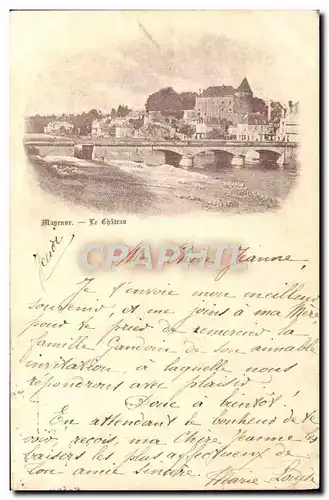 Mayenne. — Le Château
Jeudi
CPA
Ma Chère Jeanne,
Je t'envoie mon meilleur
souvenir, et me joins à ma Mère
pour te prier de remercier la
famille Gaudoin de son aimable
invitation, à laquelle nous
répondrons avec plaisir.
Donc à bientôt!
En attendant le bonheur de te
voir, reçois, ma Chère Jeanne les
baisers les plus affectueux de
ton amie sincère.
Marie-Louise